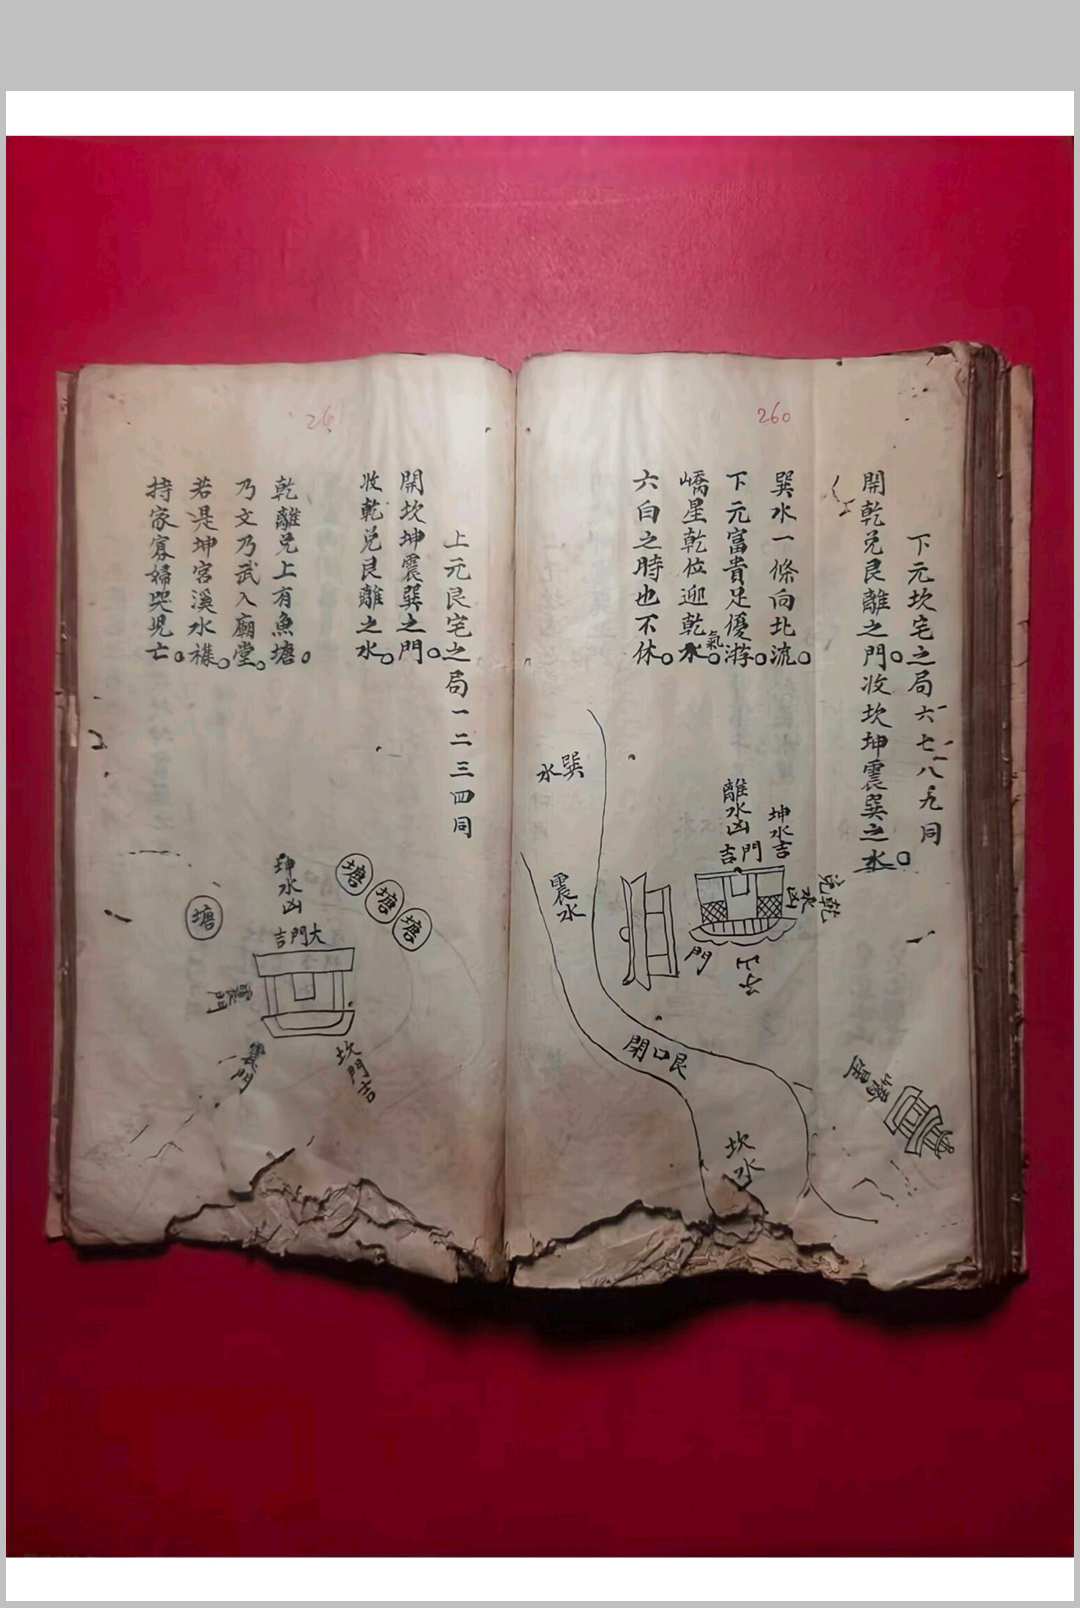 260
下元坎宅之局六七八九同
開乾兌艮離之門。收坎坤震巽之水。
巽水一條向北流。
下元富貴足優游。
嶠星乾位迎乾氣。
六白之時也不休。
離水凶
坤水吉
吉門
兌乾
水凶
門
子山
巽水
震水
艮口閉
坎水
嶠星
26
上元艮宅之局一二三四同
開坎坤震巽之門。
收乾兌艮離之水。
乾離兌上有魚塘。
乃文乃武入廟堂。
若是坤宮溪水樣。
持家寡婦哭兒亡。
塘
塘
塘
塘
坤水凶
大門吉
震門
震門
坎門吉